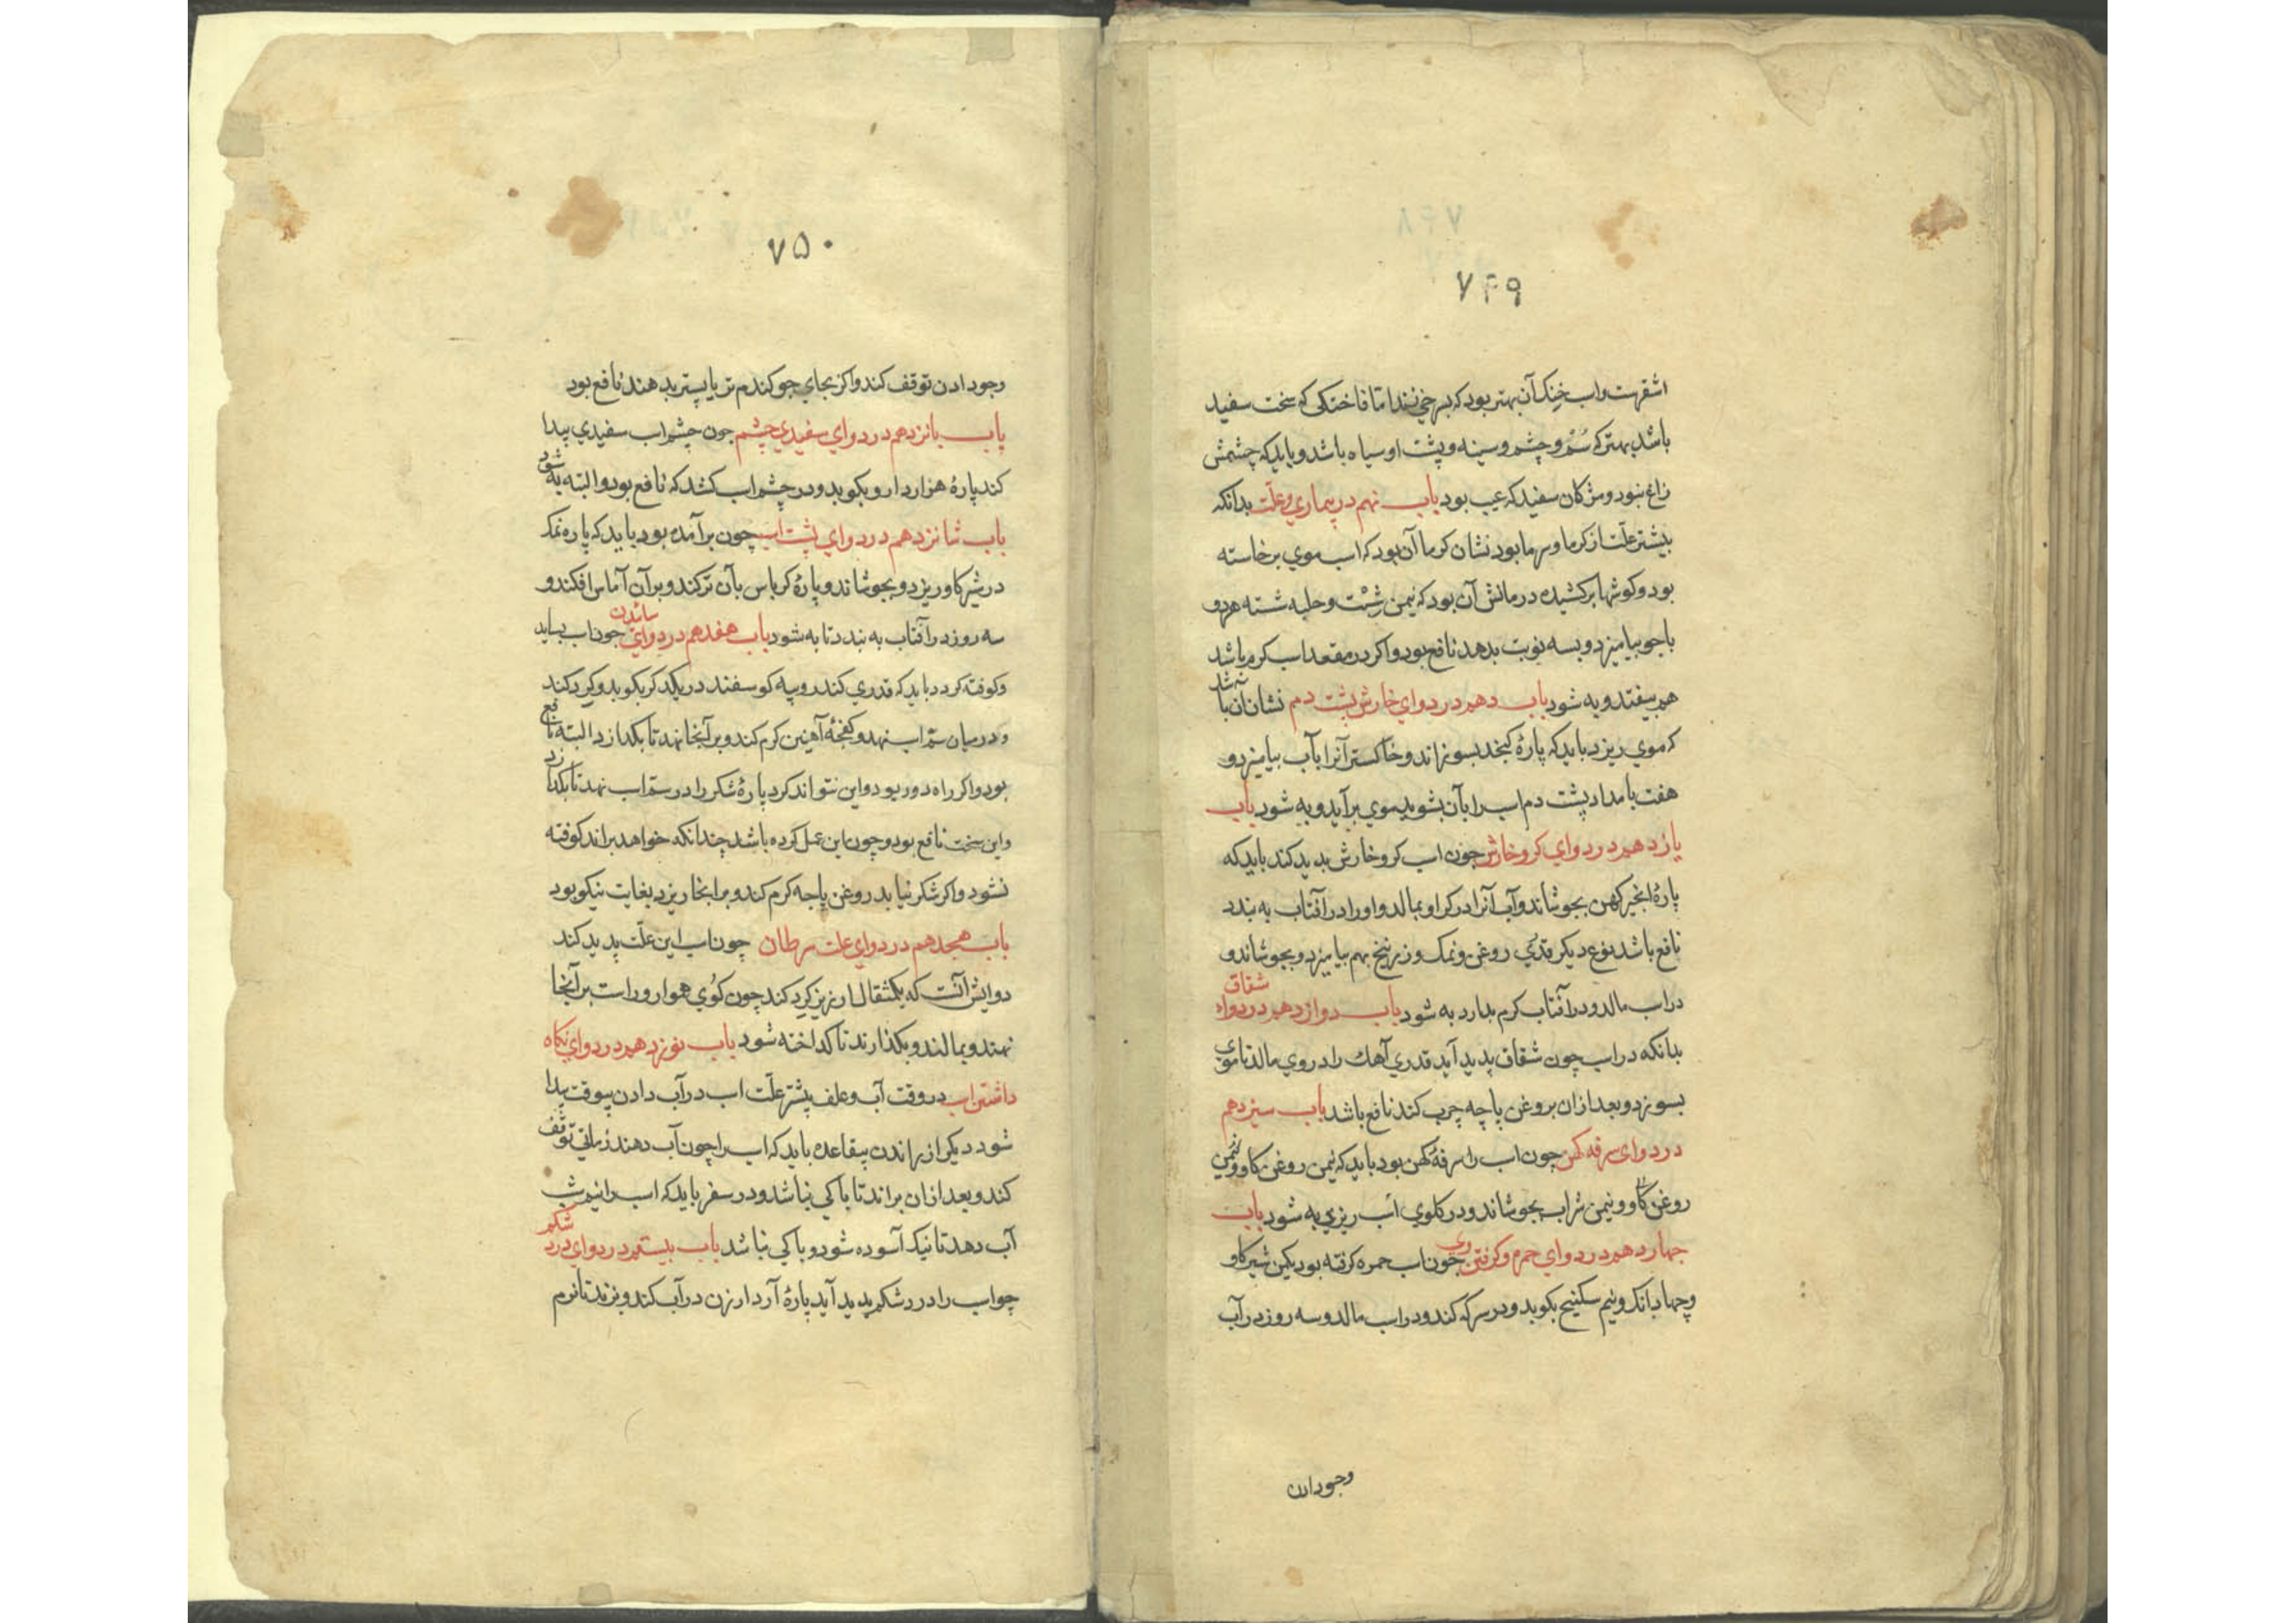 ۷۴۹
اشقرست واسب خنک آن بهتر بود که بسرخی نزند اما فاختکی که سخت سفید
باشد بهتر که سُم و چشم و سینه و پشت او سیاه باشد و باید که چشمش
زاغ نبود و مژکان سفید که عیب بود باب نهم در بیماری و علّت بدانکه
بیشتر علّت از کرما و سرما بود نشان کرما آن بود که اسب موی برخاسته
بود و کوشها برکشیده درمانش آن بود که نیمن شِبت و حلبه شسته هردو
باجو بیامیزد و بسه نوبت بدهد نافع بود واکر در مقعد اسب کرم باشد
هم بیفتد و به شود باب دهم در دوای خارش پشت دم نشان آن باشد
که موی ریزد باید که پارهٔ کنجد بسوزاند و خاکستر آنرا بآب بیامیزد و
هفت بامداد پشت دم اسب را بآن بشوید موی برآید و به شود باب
یازدهم در دوای کر و خارش چون اسب کر و خارش پدید کند باید که
پارهٔ انجیر کهن بجوشاند و آب آنرا در کر او بمالد و اورا در آفتاب به بندد
نافع باشد نوع دیکر قدری روغن و نمک و زرنیخ بهم بیامیزد و بجوشاند و
در اسب مالد و در آفتاب کرم بدارد به شود باب دوازدهم در دواء شقاق
بدانکه در اسب چون شقاق پدید آید قدری آهک را در وی مالد تا موی
بسوزد و بعد ازان بروغن پاچه چرب کند نافع باشد باب سیزدهم
در دوای سرفه کهن چون اسب را سرفهٔ کهن بود باید که نیمن روغن کاو و نیمن
روغن کاو و نیمن شراب بجوشاند و در کلوی اسب ریزی به شود باب
چهاردهم در دوای حمره کرفتن وی چون اسب حمره کرفته بود یکمن شیر کاو
و چهار دانک و نیم سکنبیج بکوبد و در سرکه کند و در اسب مالد و سه روز در آب
وجو دادن
۷۵۰
وجو دادن توقف کند واکر بجای جو کندم تر یا پستر بدهند نافع بود
باب پانزدهم در دوای سفیدی چشم چون چشم اسب سفیدی پیدا
کند پارهٔ هزاردارو بکوبد و در چشم اسب کشد که نافع بود و البته به شود
باب شانزدهم در دوای پشت اسب چون برآمده بود باید که پاره نمک
در شیر کاو ریزد و بجوشاند و پارهٔ کرباس بآن ترکند و بر آن آماس افکند و
سه روز در آفتاب به بندد تا به شود باب هفدهم در دوای سائیدن چون اسب بساید
و کوفته کردد باید که قدری کندر و پیه کوسفند در یکدکر بکوبد و کرد کند
و در میان سُمّ اسب نهد و کفجهٔ آهنین کرم کند و بر آنجا نهد تا بکدازد البته نافع
بود واکر راه دور بود و این نتواند کرد پارهٔ شکر را در سمّ اسب نهد تا بکدازد
و این سخت نافع بود و چون این عمل کرده باشد چندانکه خواهد براند کوفته
نشود واکر شکر نیابد روغن پاچه کرم کند و برآنجا ریزد بغایت نیکو بود
باب هیجدهم در دوای علت سرطان چون اسب این علّت پدید کند
دوایش آنست که یکمثقال ارزیز کرد کند چون کوی هموار و راست برآنجا
نهند و بمالند و بکذارند تا کداخته شود باب نوزدهم در دوای نکاه
داشتن اسب در وقت آب و علف پیشتر علّت اسب در آب دادن بیوقت پیدا
شود دیکر از راندن بیقاعده باید که اسب را چون آب دهند زمانی توقف
کند و بعد ازان براند تا باکی نباشد و در سفر باید که اسب را نیم شب
آب دهد تا نیک آسوده شود و باکی نباشد باب بیستم در دوای درد شکم
چو اسب را درد شکم پدید آید پارهٔ آرد ارزن در آب کند و بزند تا نرم